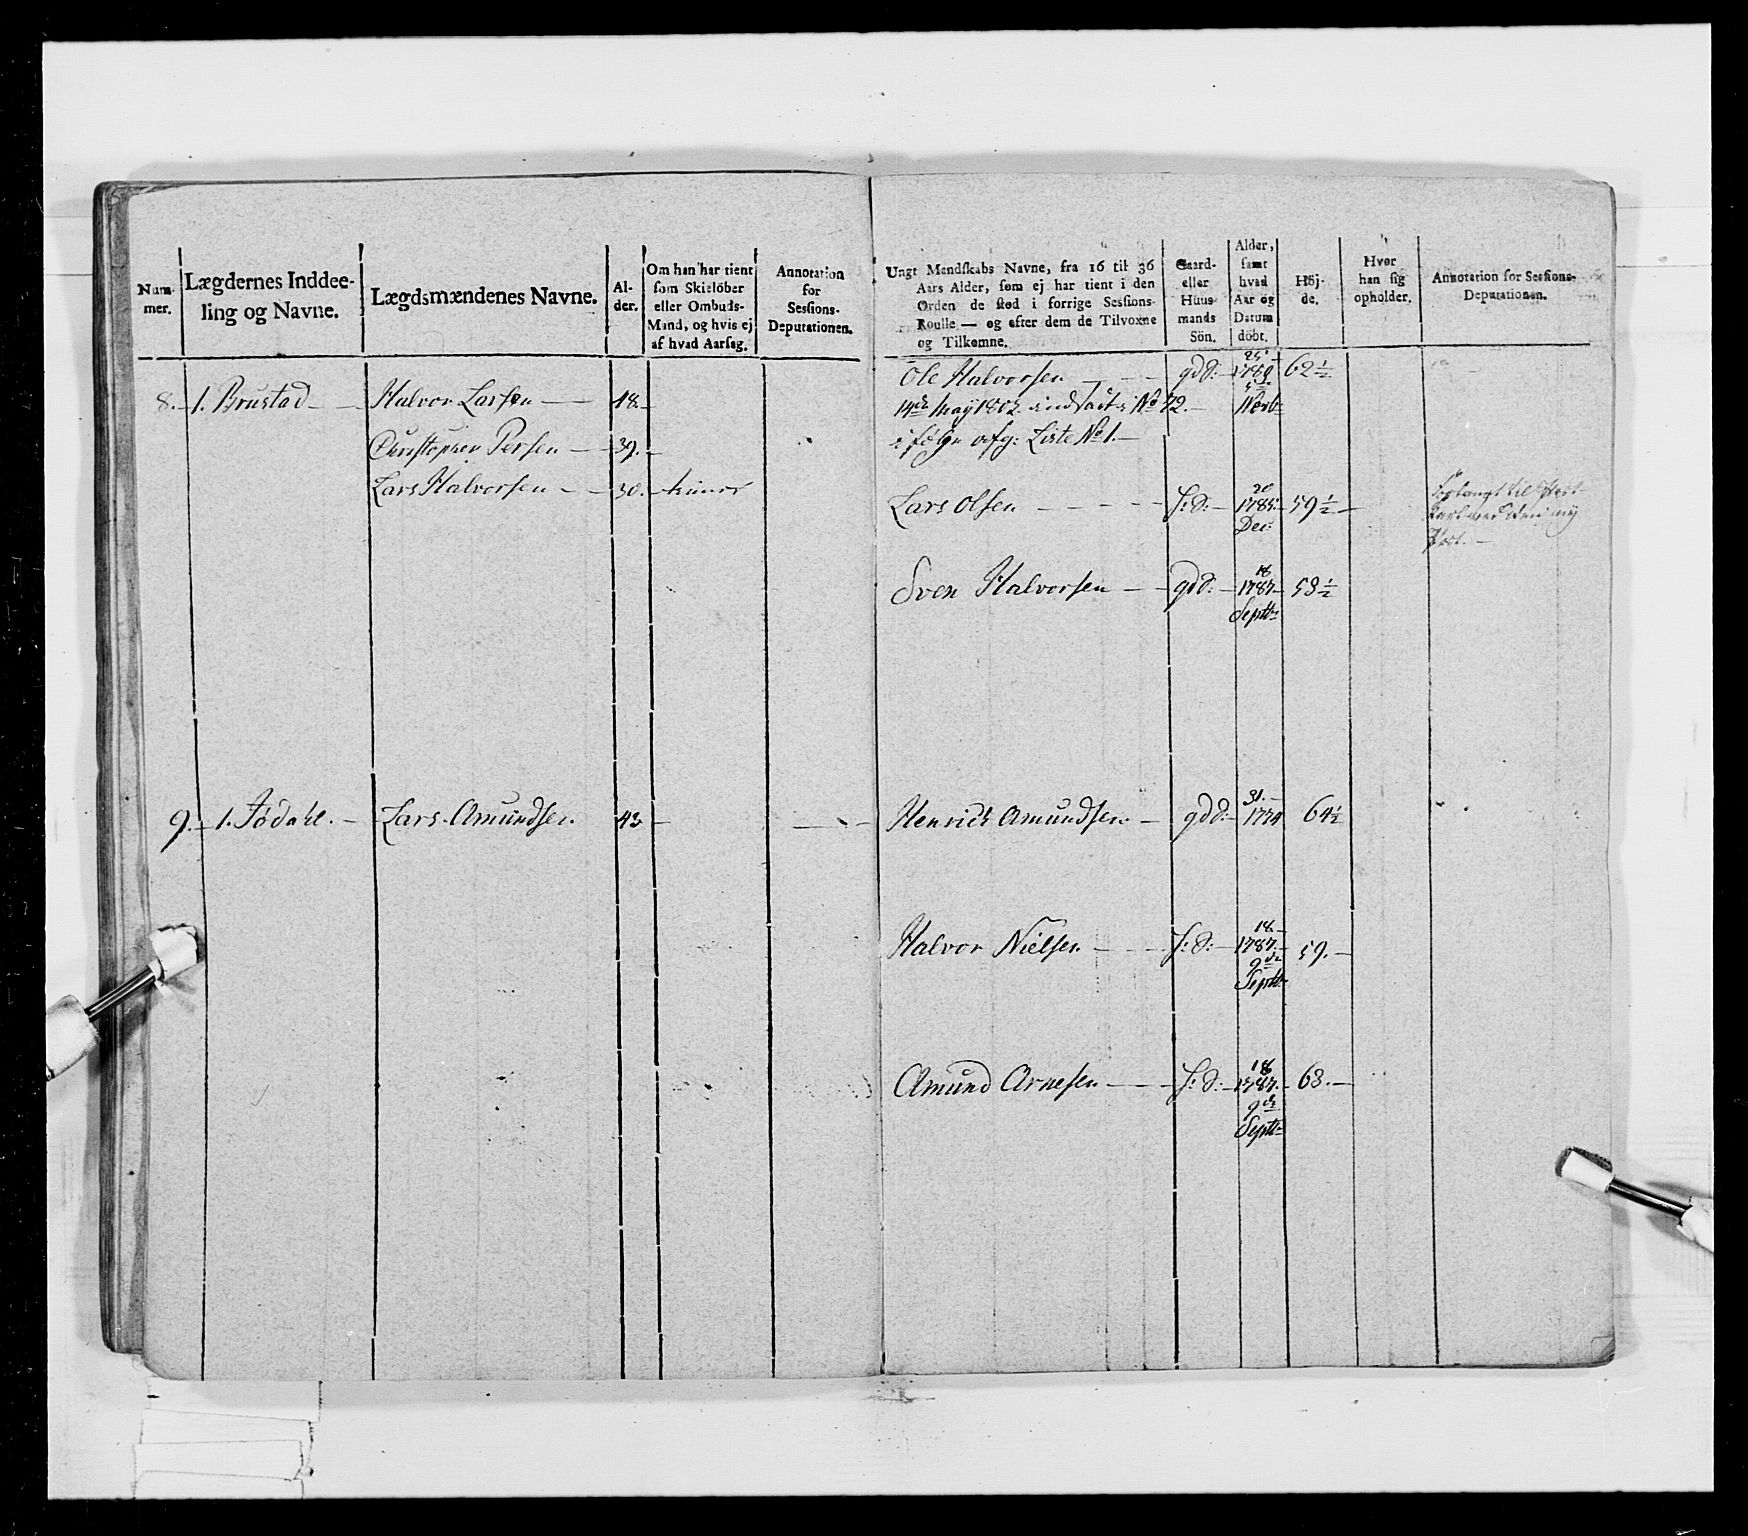 Num-
mer.
Lægdernes Inddee-
ling og Navne.
Lægdsmændenes Navne.
Al-
der.
Om han har tient
som Skielöber
eller Ombuds-
Mand, og hvis ej
af hvad Aarsag.
Annotation
for
Sessions-
Deputationen.
8. 1. Brustad Halvor Larsen 48.
Christopher Persen 39.
Lars Halvorsen 30.
9. 1. Jødahl. Lars Amundsen 43
Ungt Mandskabs Navne, fra 16 til 36
Aars Alder, som ej har tient i den
Orden de stod i forrige Sessions-
Roulle — og efter dem de Tilvoxne
og Tilkomne.
Gaard-
eller
Huus
mands
Sön.
Alder,
samt
hvad
Aar og
Datum
döbt.
Höj-
de.
Hvor
han sig
opholder.
Annotation for Sessions-
Deputationen.
25
Ole Halvorsen gdd: 1780 62 1/2
14de May 1802 indsadt i No 72.
i følge afg: Liste No 1.
20
Lars Olsen h:d: 1785 59 1/2
Dec:
18
Sven Halvorsen gdd: 1787 53 1/2
Septbr
31.
Henrich Amundsen gdd: 1774 64 1/2
18.
Halvor Nielsen h:d: 1787 59.
9de
Septbr
18
Amund Arnesen h:d: 1787. 63.
9de
Septbr